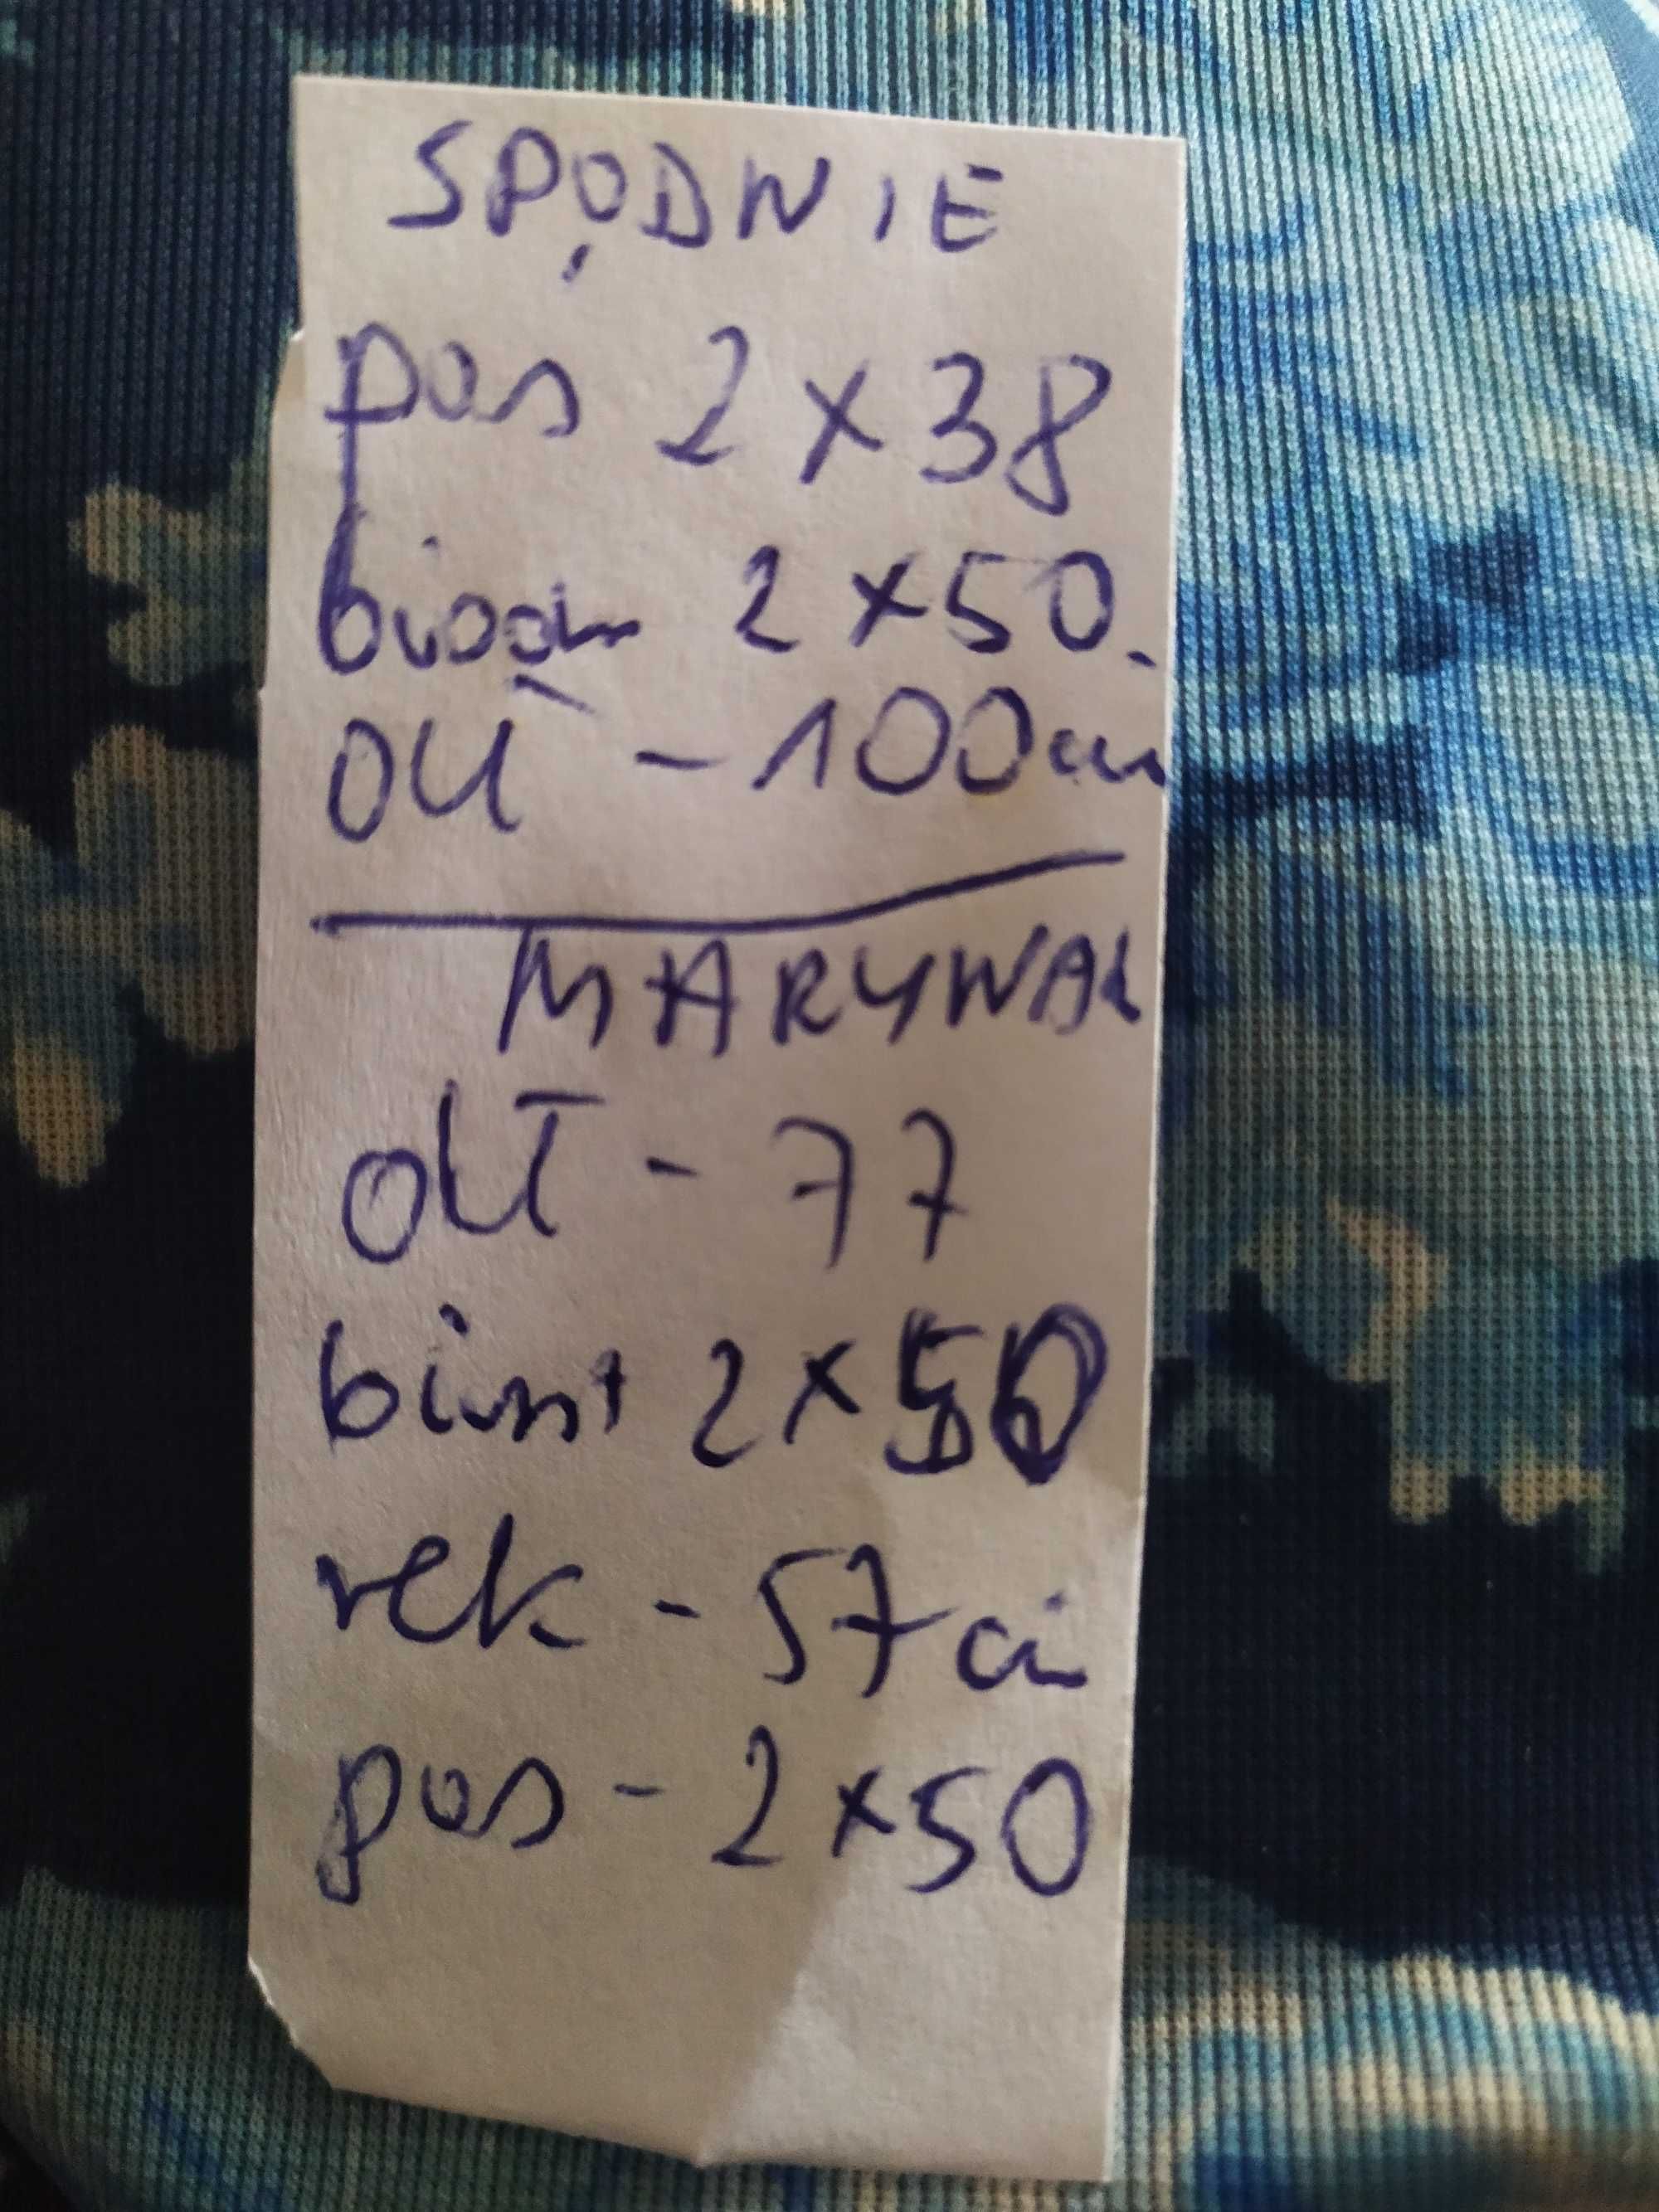 SPODNIE
pas 2 x 38
biodr 2 x 50.
dł - 100cm
MARYNAR
dł - 77
biust 2 x 50
ręk - 57cm
pas - 2 x 50